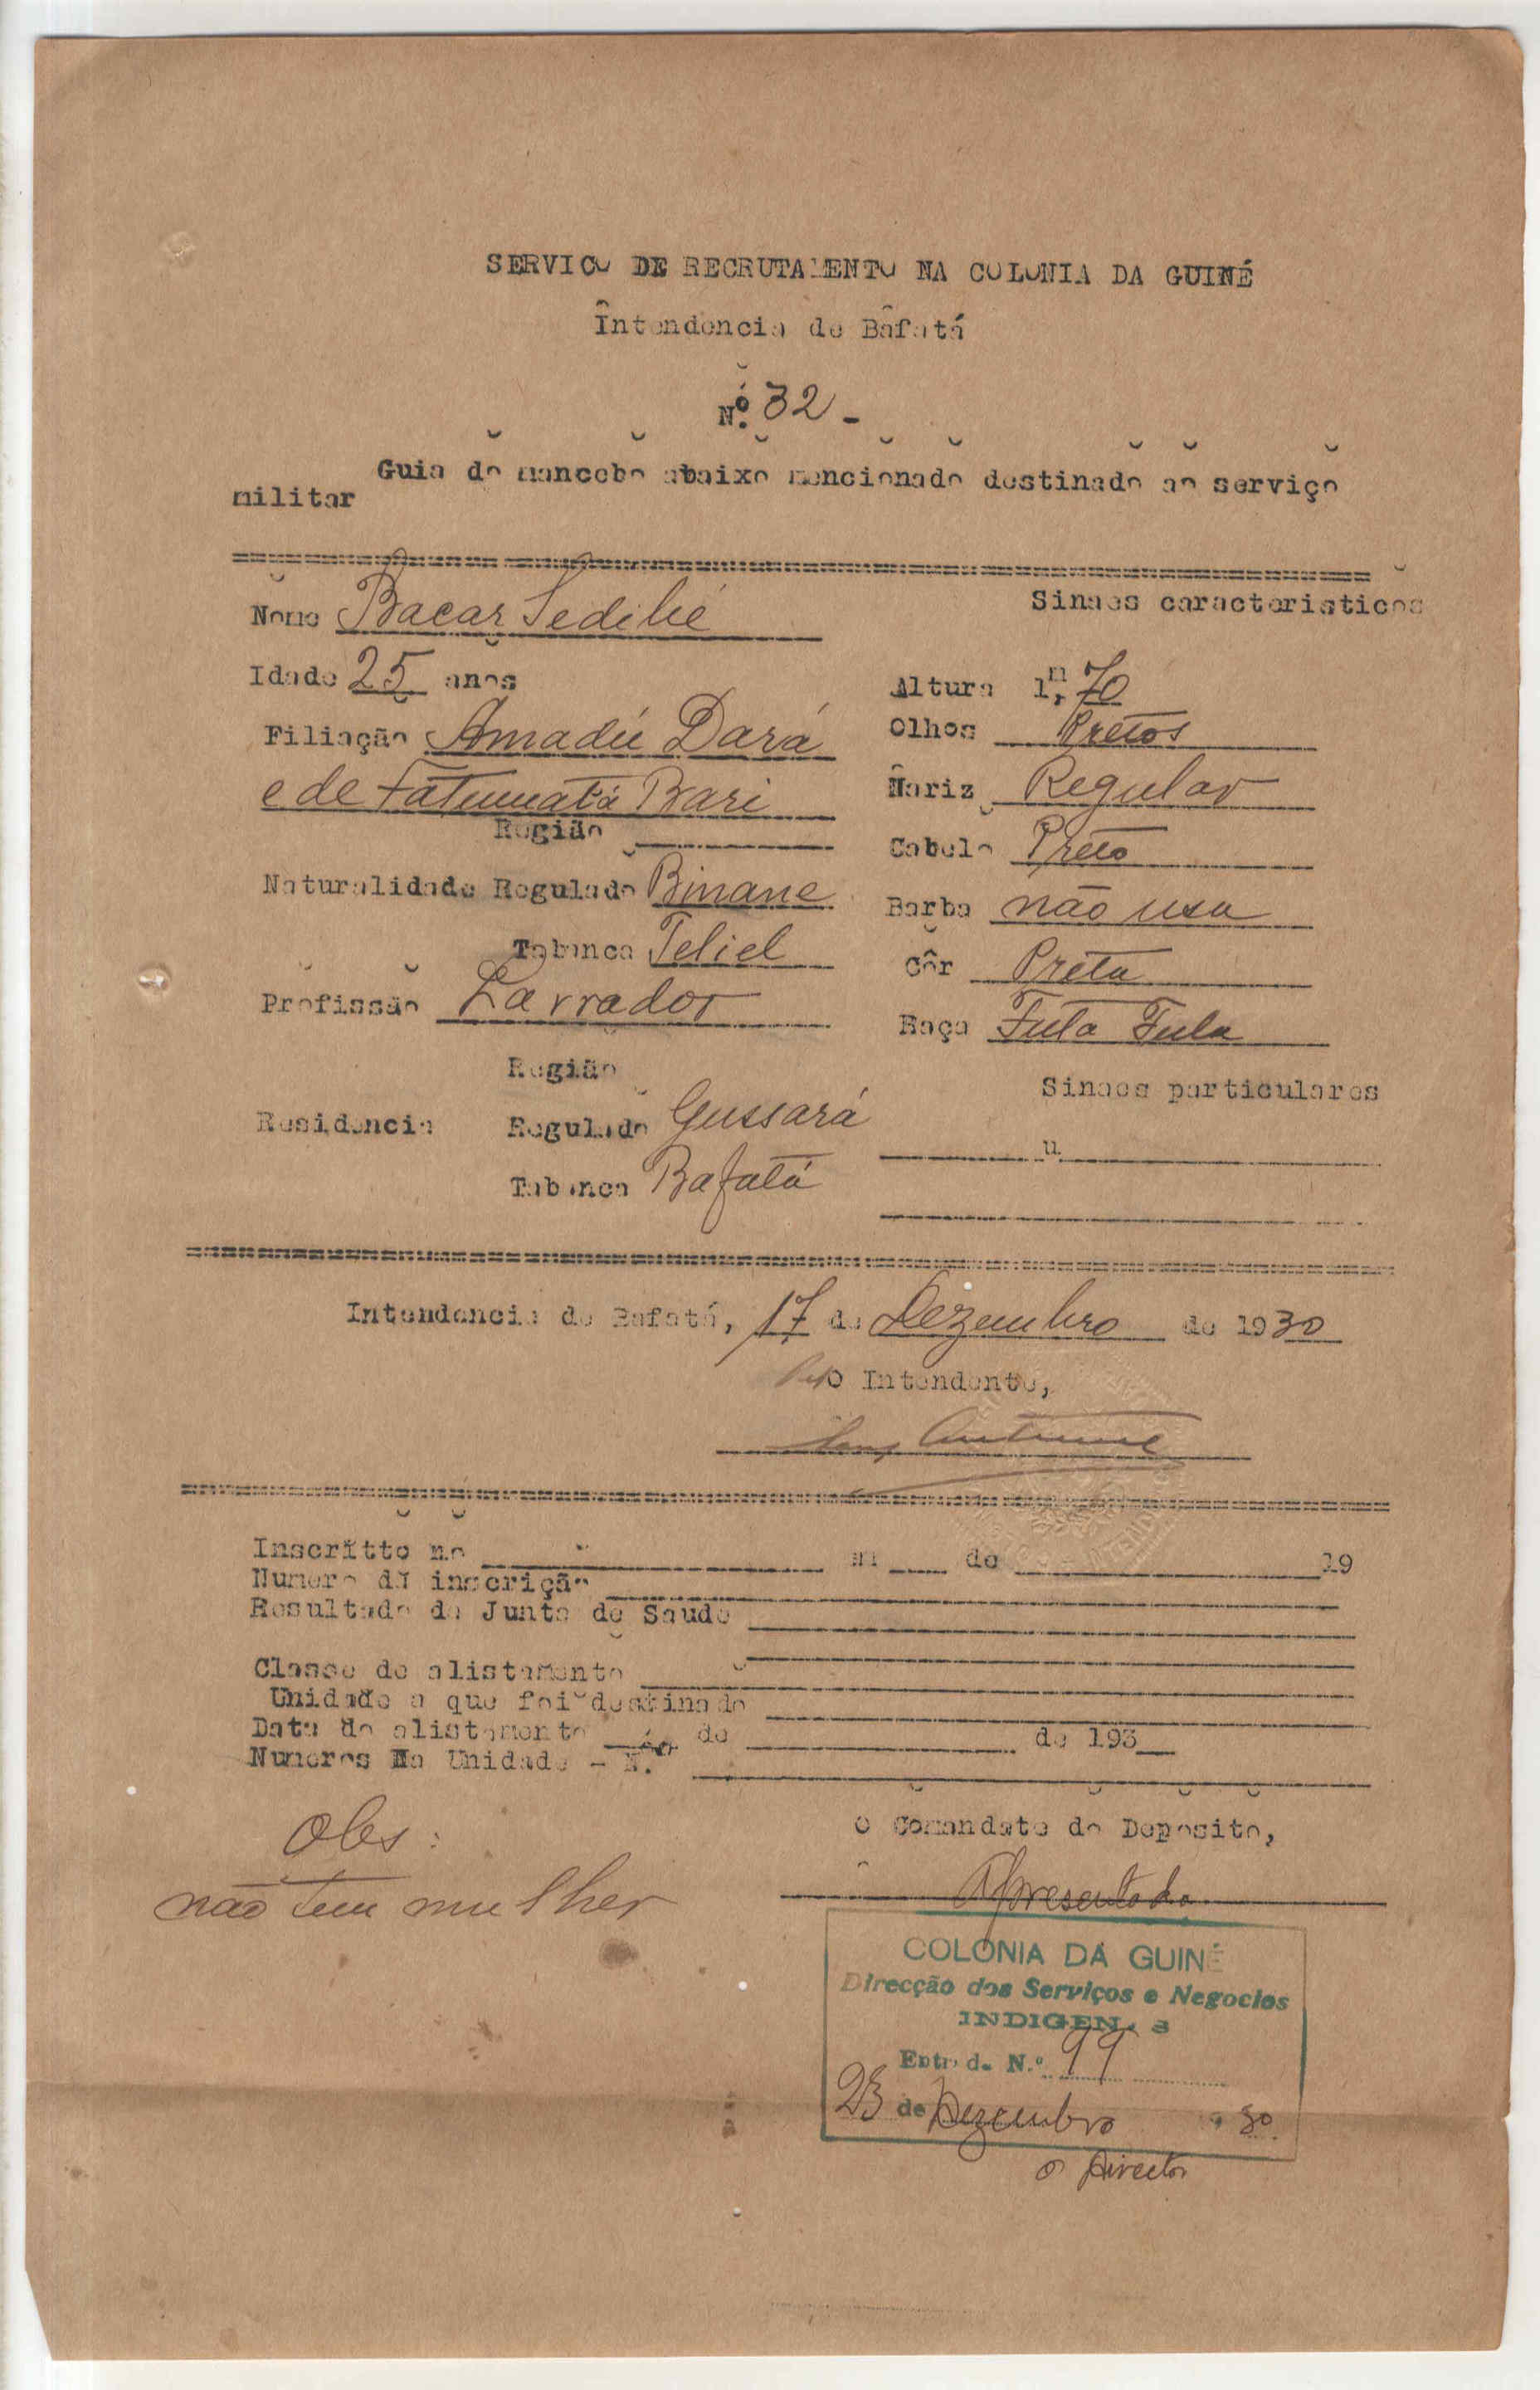 SERVICO DE RECRUTAMENTO NA COLONIA DA GUINÉ
Intendencia de Bafatá
N.º 32 -
Guia do mancebo abaixo mencionado destinado ao serviço
militar
Nome Bacar Sedibé
Sinaes caracteristicos
Idade 25 anos
Altura 1,m 70
Filiação Amadú Dará
Olhos Pretos
e de Fatumatá Bari
Nariz Regular
Região
Cabelo Preto
Naturalidade Regulado Binane
Barba não usa
Tabanca Teliel
Côr Preta
Profissão Lavrador
Raça Futa Fula
Região
Sinaes particulares
Residencia Regulado Gussará
Tabanca Bafatá
Intendencia de Bafatá, 17 de Dezembro de 1930
Pelo Intendente,
Antunes
Inscritto no em de 19
Numero da inscrição
Resultado da Junta de Saude
Classe de alistamento
Unidade a que foi destinado
Data do alistamento de de 193
Numeros Na Unidade - N.º
O Comandate do Deposito,
Obs:
não tem mulher
Apresentado
COLONIA DA GUINÉ
Direcção dos Serviços e Negocios
INDIGENAS
Entrada N.º 99
23 de Dezembro 30
O Director